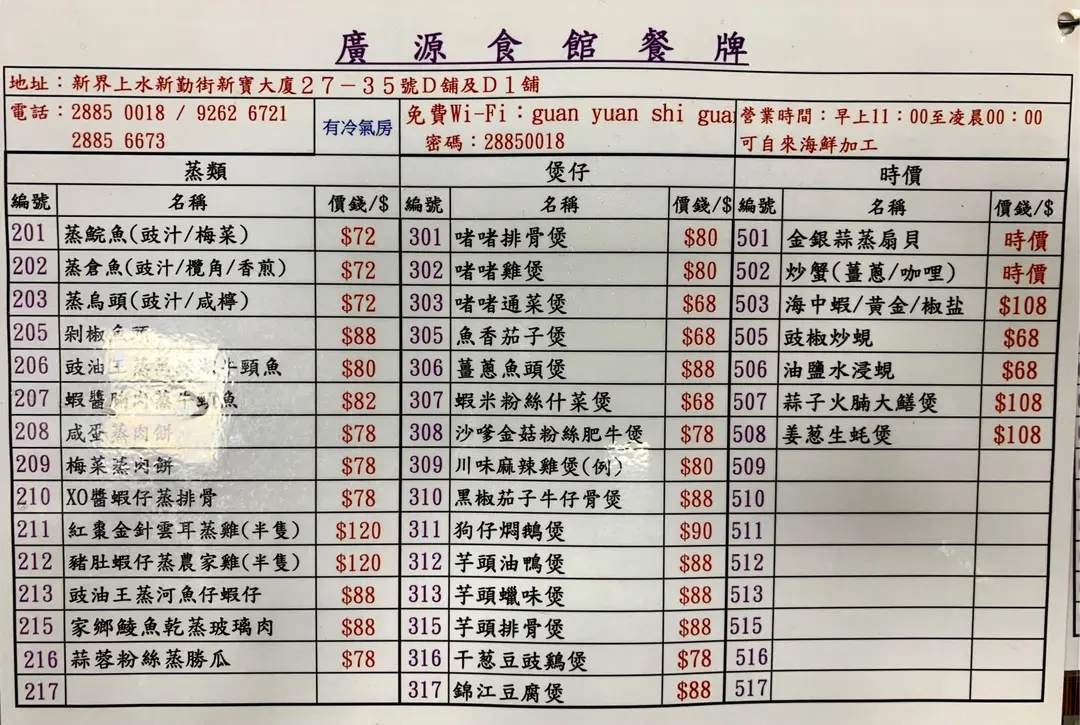 廣源食館餐牌
地址：新界上水新勤街新寶大廈２７－３５號Ｄ舖及Ｄ１舖
電話：2885 0018 / 9262 6721
2885 6673
有冷氣房
免費Wi-Fi：guan yuan shi guan
密碼：28850018
營業時間：早上11：00至凌晨00：00
可自來海鮮加工
蒸類 煲仔 時價
編號 名稱 價錢/$ 編號 名稱 價錢/$ 編號 名稱 價錢/$
201 蒸鯇魚(豉汁/梅菜) $72 301 啫啫排骨煲 $80 501 金銀蒜蒸扇貝 時價
202 蒸倉魚(豉汁/欖角/香煎) $72 302 啫啫雞煲 $80 502 炒蟹(薑蔥/咖哩) 時價
203 蒸烏頭(豉汁/咸檸) $72 303 啫啫通菜煲 $68 503 海中蝦/黃金/椒盐 $108
205 剁椒魚頭 $88 305 魚香茄子煲 $68 505 豉椒炒蜆 $68
206 豉油王蒸 牛頸魚 $80 306 薑蔥魚頭煲 $88 506 油鹽水浸蜆 $68
207 蝦醬腩肉蒸牛頸魚 $82 307 蝦米粉絲什菜煲 $68 507 蒜子火腩大鱔煲 $108
208 咸蛋蒸肉餅 $78 308 沙嗲金菇粉絲肥牛煲 $78 508 姜葱生蚝煲 $108
209 梅菜蒸肉餅 $78 309 川味麻辣雞煲(例) $80 509
210 XO醬蝦仔蒸排骨 $78 310 黑椒茄子牛仔骨煲 $88 510
211 紅棗金針雲耳蒸雞(半隻) $120 311 狗仔燜鵝煲 $90 511
212 豬肚蝦仔蒸農家雞(半隻) $120 312 芋頭油鴨煲 $88 512
213 豉油王蒸河魚仔蝦仔 $88 313 芋頭蠟味煲 $88 513
215 家鄉鯪魚乾蒸玻璃肉 $88 315 芋頭排骨煲 $88 515
216 蒜蓉粉絲蒸勝瓜 $78 316 干葱豆豉鷄煲 $78 516
217 317 錦江豆腐煲 $88 517